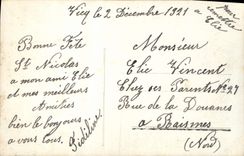 Vicq le 2 Décembre 1921
Bonne Fête
St Nicolas
a mon ami Elie
et mes meilleurs
Amitiés
bien le bonjours
a vous tous.
Fidéline
Monsieur
Elie Vincent
Chez ses Parents N° 27
Rue de la Douanes
a Raismes
(Nord)